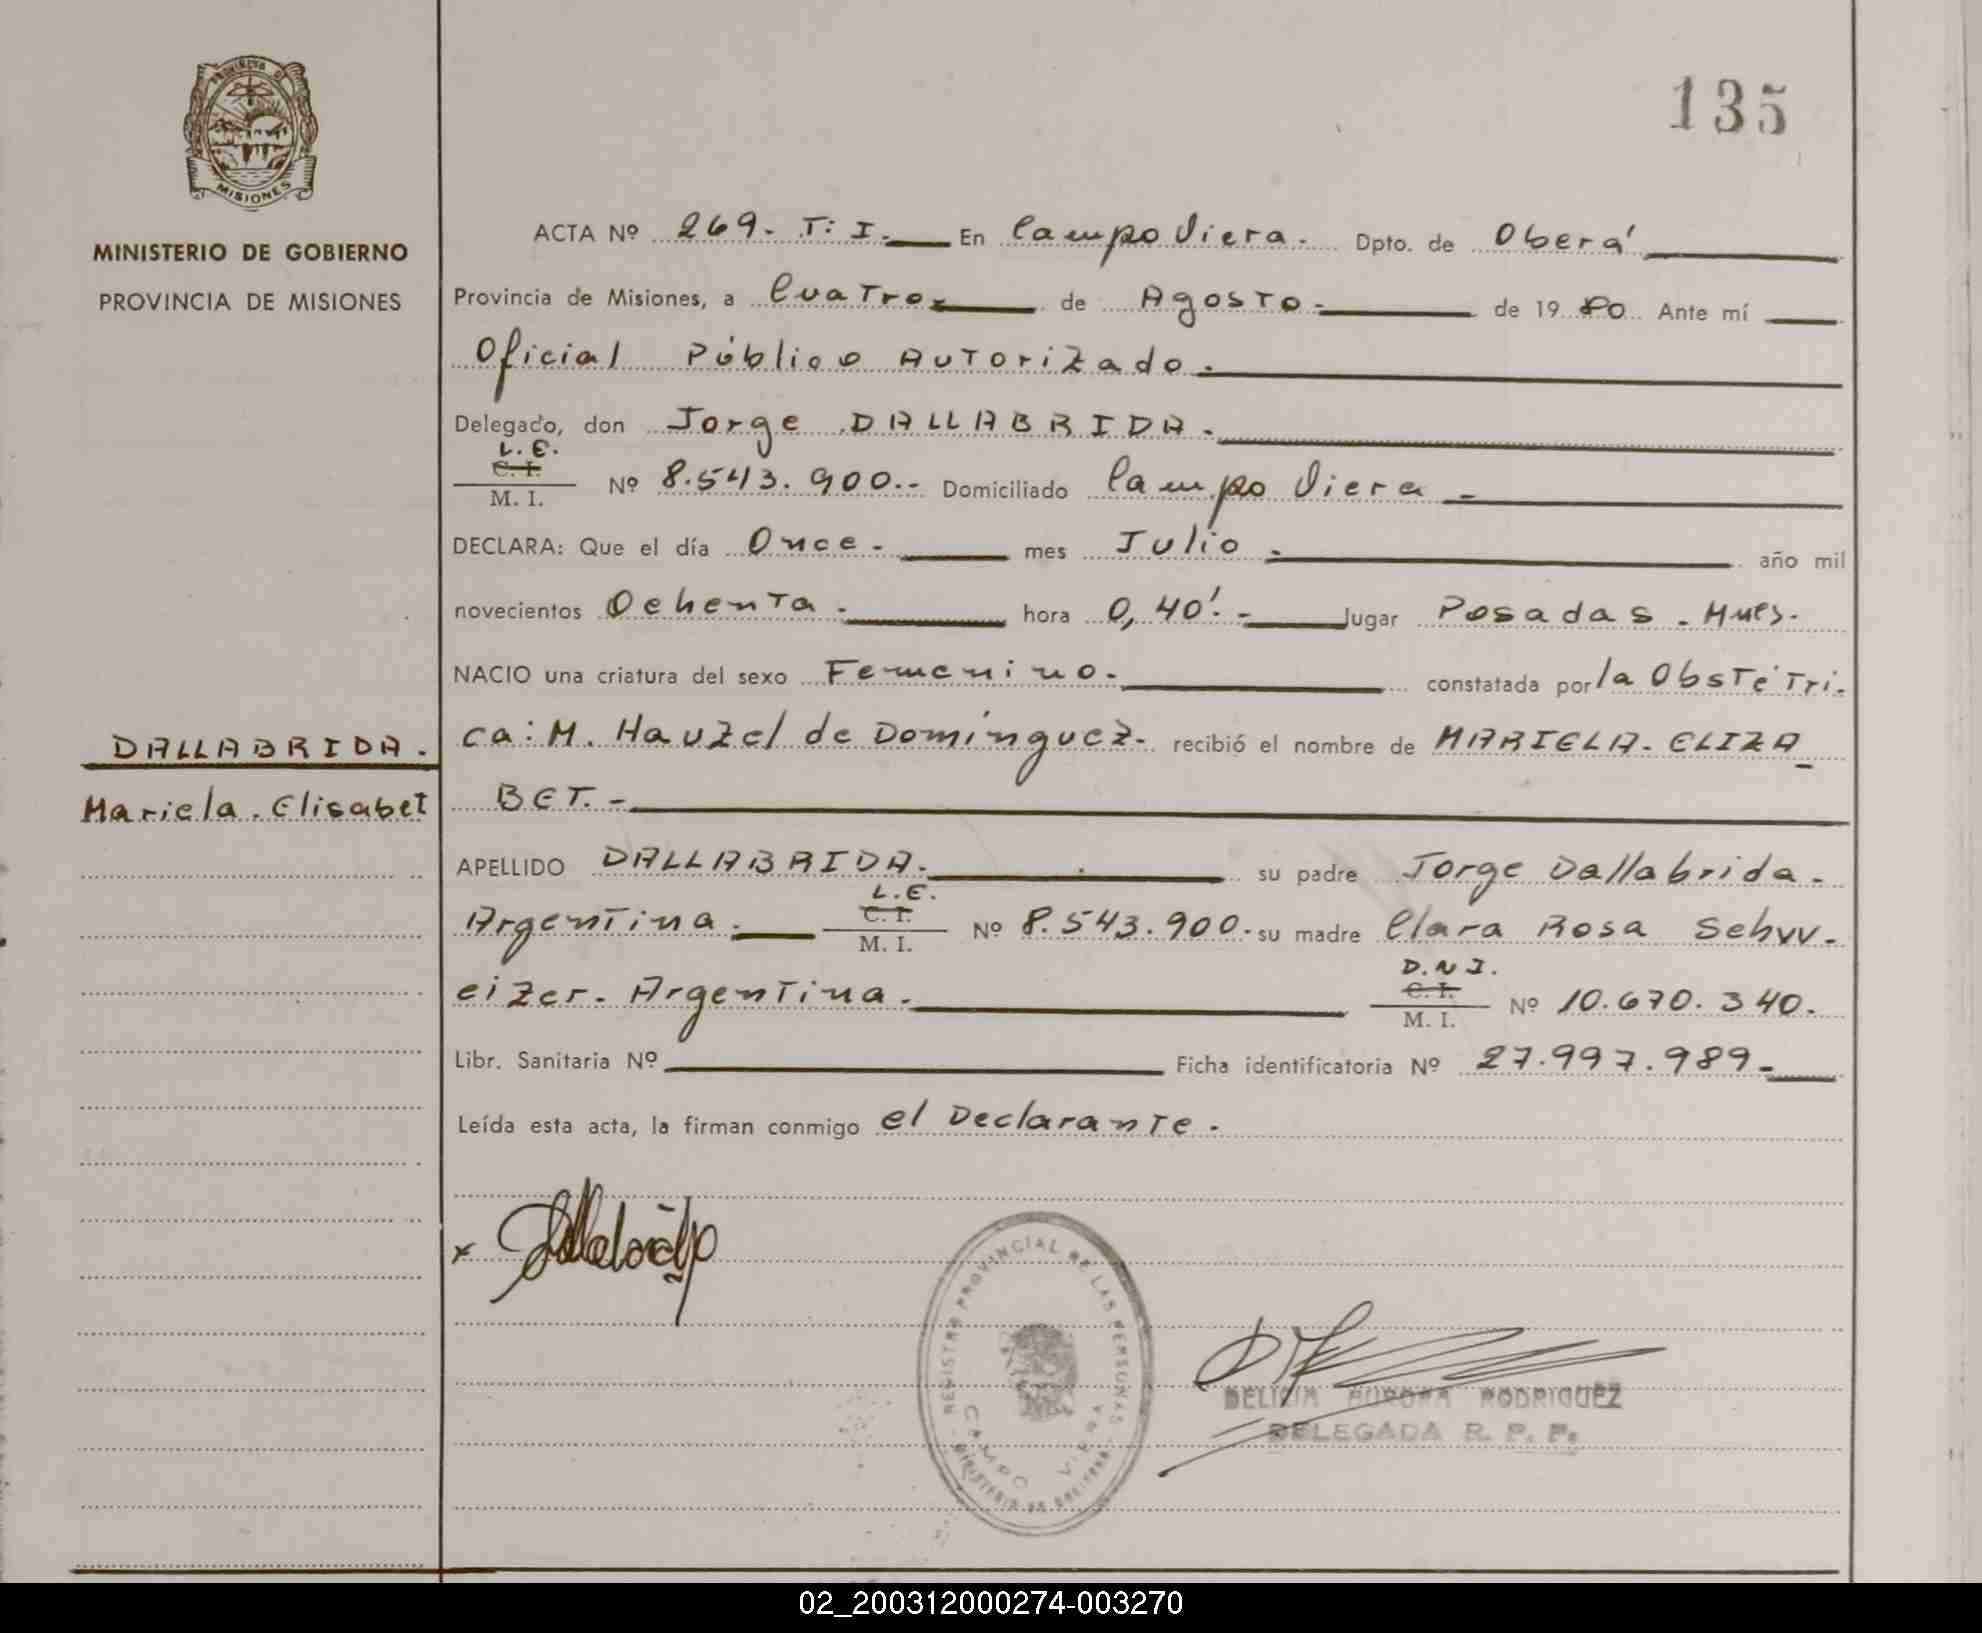 PROVINCIA DE
MISIONES
MINISTERIO DE GOBIERNO
PROVINCIA DE MISIONES
135
ACTA Nº 269. T: I. En Campo Viera. Dpto. de Oberá
Provincia de Misiones, a Cuatro de Agosto. de 19 80 Ante mí
Oficial Público Autorizado.
Delegado, don Jorge DALLABRIDA.
L.E.
C. I.
M. I. Nº 8.543.900.- Domiciliado Campo Viera -
DECLARA: Que el día Once. mes Julio. año mil
novecientos Ochenta. hora 0,40'.- lugar Posadas. Mnes.
NACIO una criatura del sexo Femenino. constatada por la Obstétri-
ca: M. Hauzel de Domínguez. recibió el nombre de MARIELA. ELIZA_
BET.-
DALLABRIDA.
Mariela. Elisabet
APELLIDO DALLABRIDA. su padre Jorge Dallabrida.
Argentina. L.E. C. I. M. I. Nº 8.543.900. su madre Clara Rosa Schw-
eizer. Argentina. D.N.I. C. I. M. I. Nº 10.670.340.
Libr. Sanitaria Nº Ficha identificatoria Nº 27.997.989-
Leída esta acta, la firman conmigo el Declarante.
x
REGISTRO PROVINCIAL DE LAS PERSONAS
CAMPO VIERA
MINISTERIO DE GOBIERNO
DELICIA AURORA RODRIGUEZ
DELEGADA R. P. P.
02_200312000274-003270